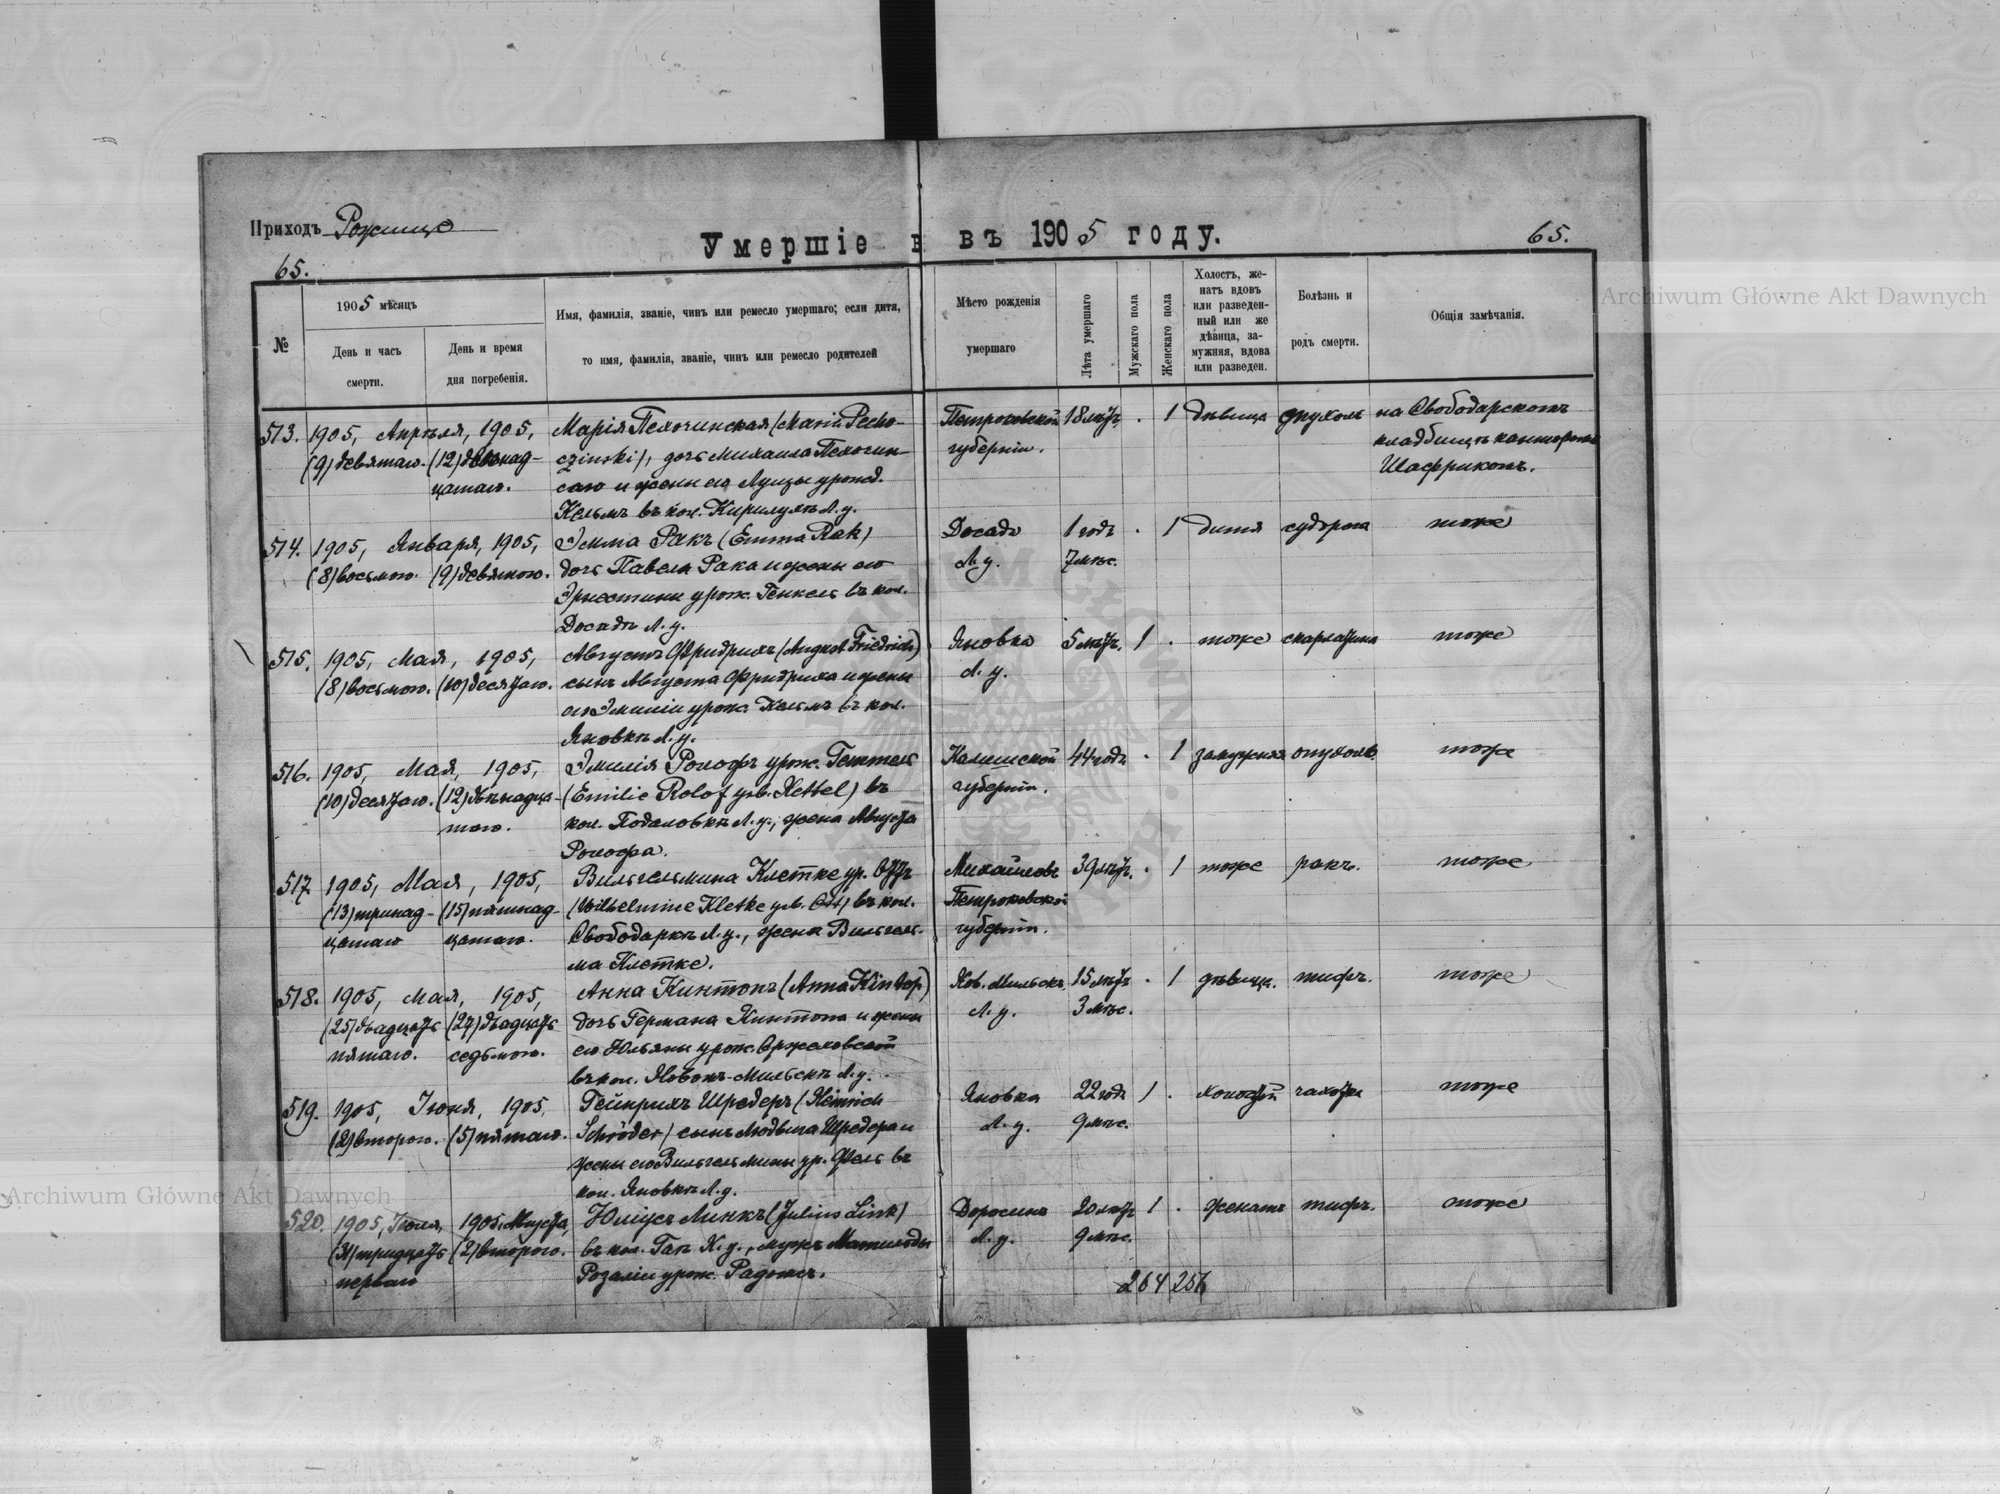 Приходъ Рожище
Умершіе в въ 1905 году.
65.
65.
№
1905 мѣсяцъ
День и часъ
смерти.
День и время
дня погребенія.
Имя, фамилія, званіе, чинъ или ремесло умершаго; если дитя,
то имя, фамилія, званіе, чинъ или ремесло родителей
Мѣсто рожденія
умершаго
Лѣта умершаго
Мужскаго пола
Женскаго пола
Холостъ, же-
натъ вдовъ
или разведен-
ный или же
дѣвица, за-
мужняя, вдова
или разведен.
Болѣзнь и
родъ смерти.
Общія замѣчанія.
513.
1905, Апрѣля, 1905,
(9) девятаго. (12) двѣнад-
цатаго.
Марія Пехочинская (Maria Pecho-
czinski), дочь Михаила Пехочин-
скаго и жены его Луизы урожд.
Кельмъ въ кол. Л. у.
Петроковской
губерніи.
18 лѣтъ
. 1
дѣвица
опухоль
на Свободарскомъ
кладбищѣ канторомъ
Шаффрикомъ.
514.
1905, Января, 1905,
(8) восьмого. (9) девятого.
Эмма Ракъ (Emma Rak)
дочь Павела Рака и жены его
Эрнестины урож. Генкель въ кол.
Досадѣ Л. у.
Досадѣ
Л. у.
1 годъ
7 мѣс.
. 1
дитя
судорога
тоже
515.
1905, Мая, 1905,
(8) восьмого. (10) десятаго.
Августъ Фридрихъ (August Friedrich)
сынъ Августа Фридриха и жены
его Эмиліи урож. Кельмъ въ кол.
Яновкѣ Л. у.
Яновка
Л. у.
5 лѣтъ.
1 .
тоже
скарлатина
тоже
516.
1905, Мая, 1905,
(10) десятаго. (12) двѣнадца-
таго.
Эмилія Ролофъ урож. Геттель
(Emilie Rolof geb. Hettel) въ
кол. Л. у., жена Августа
Ролофа.
Калишской
губерніи.
44 годъ
. 1
замужняя
опухоль.
тоже
517
1905, Мая, 1905,
(13) тринад- (15) пятнад-
цатаго цатаго.
Вильгельмина Клетке ур. Оттъ
(Wilhelmine Kletke geb. Ott) въ кол.
Свободаркѣ Л. у., жена Вильгель-
ма Клетке.
Михайловъ
Петроковской
губерніи.
39 лѣтъ.
. 1
тоже
ракъ.
тоже
518.
1905, Мая, 1905,
(25) двадцать (27) двадцать
пятаго. седьмого.
Анна Кинтопъ (Anna Kintop)
дочь Германа Кинтопа и жены
его Юльяны урож. Оржеховской
въ кол. Яковъ-Мильскѣ Л. у.
Л. у.
15 лѣтъ
3 мѣс.
. 1
дѣвица.
тифъ.
тоже
519.
1905, Іюня, 1905,
(2) второго. (5) пятаго.
Гейнрихъ Шредеръ (Heinrich
Schröder) сынъ Людвига Шредера и
жены его Вильгельмины ур. Фель въ
кол. Яновкѣ Л. у.
Яновка
Л. у.
22 года
9 мѣс.
1 .
холостой
чахотка
тоже
520.
1905, Іюля, 1905, Августа,
(31) тридцать (2) второго.
перваго
Юліусъ Линкъ (Julius Link)
въ кол. Гать Л. у., мужъ Матильды
Розаліи урож. Радомъ.
Доросинъ
Л. у.
20 лѣтъ
9 мѣс.
1 .
женатъ
тифъ.
тоже
264 256
Archiwum Główne Akt Dawnych
Archiwum Główne Akt Dawnych